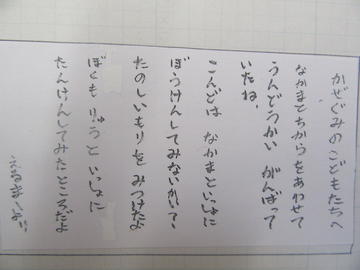 かぜぐみのこどもたちへ
なかまとちからをあわせて
うんどうかい がんばって
いたね。
こんどは なかまといっしょに
ぼうけんしてみないかい？
たのしいもりを みつけたよ
ぼくも りゅうと いっしょに
たんけんしてみたところだよ
えるまーより